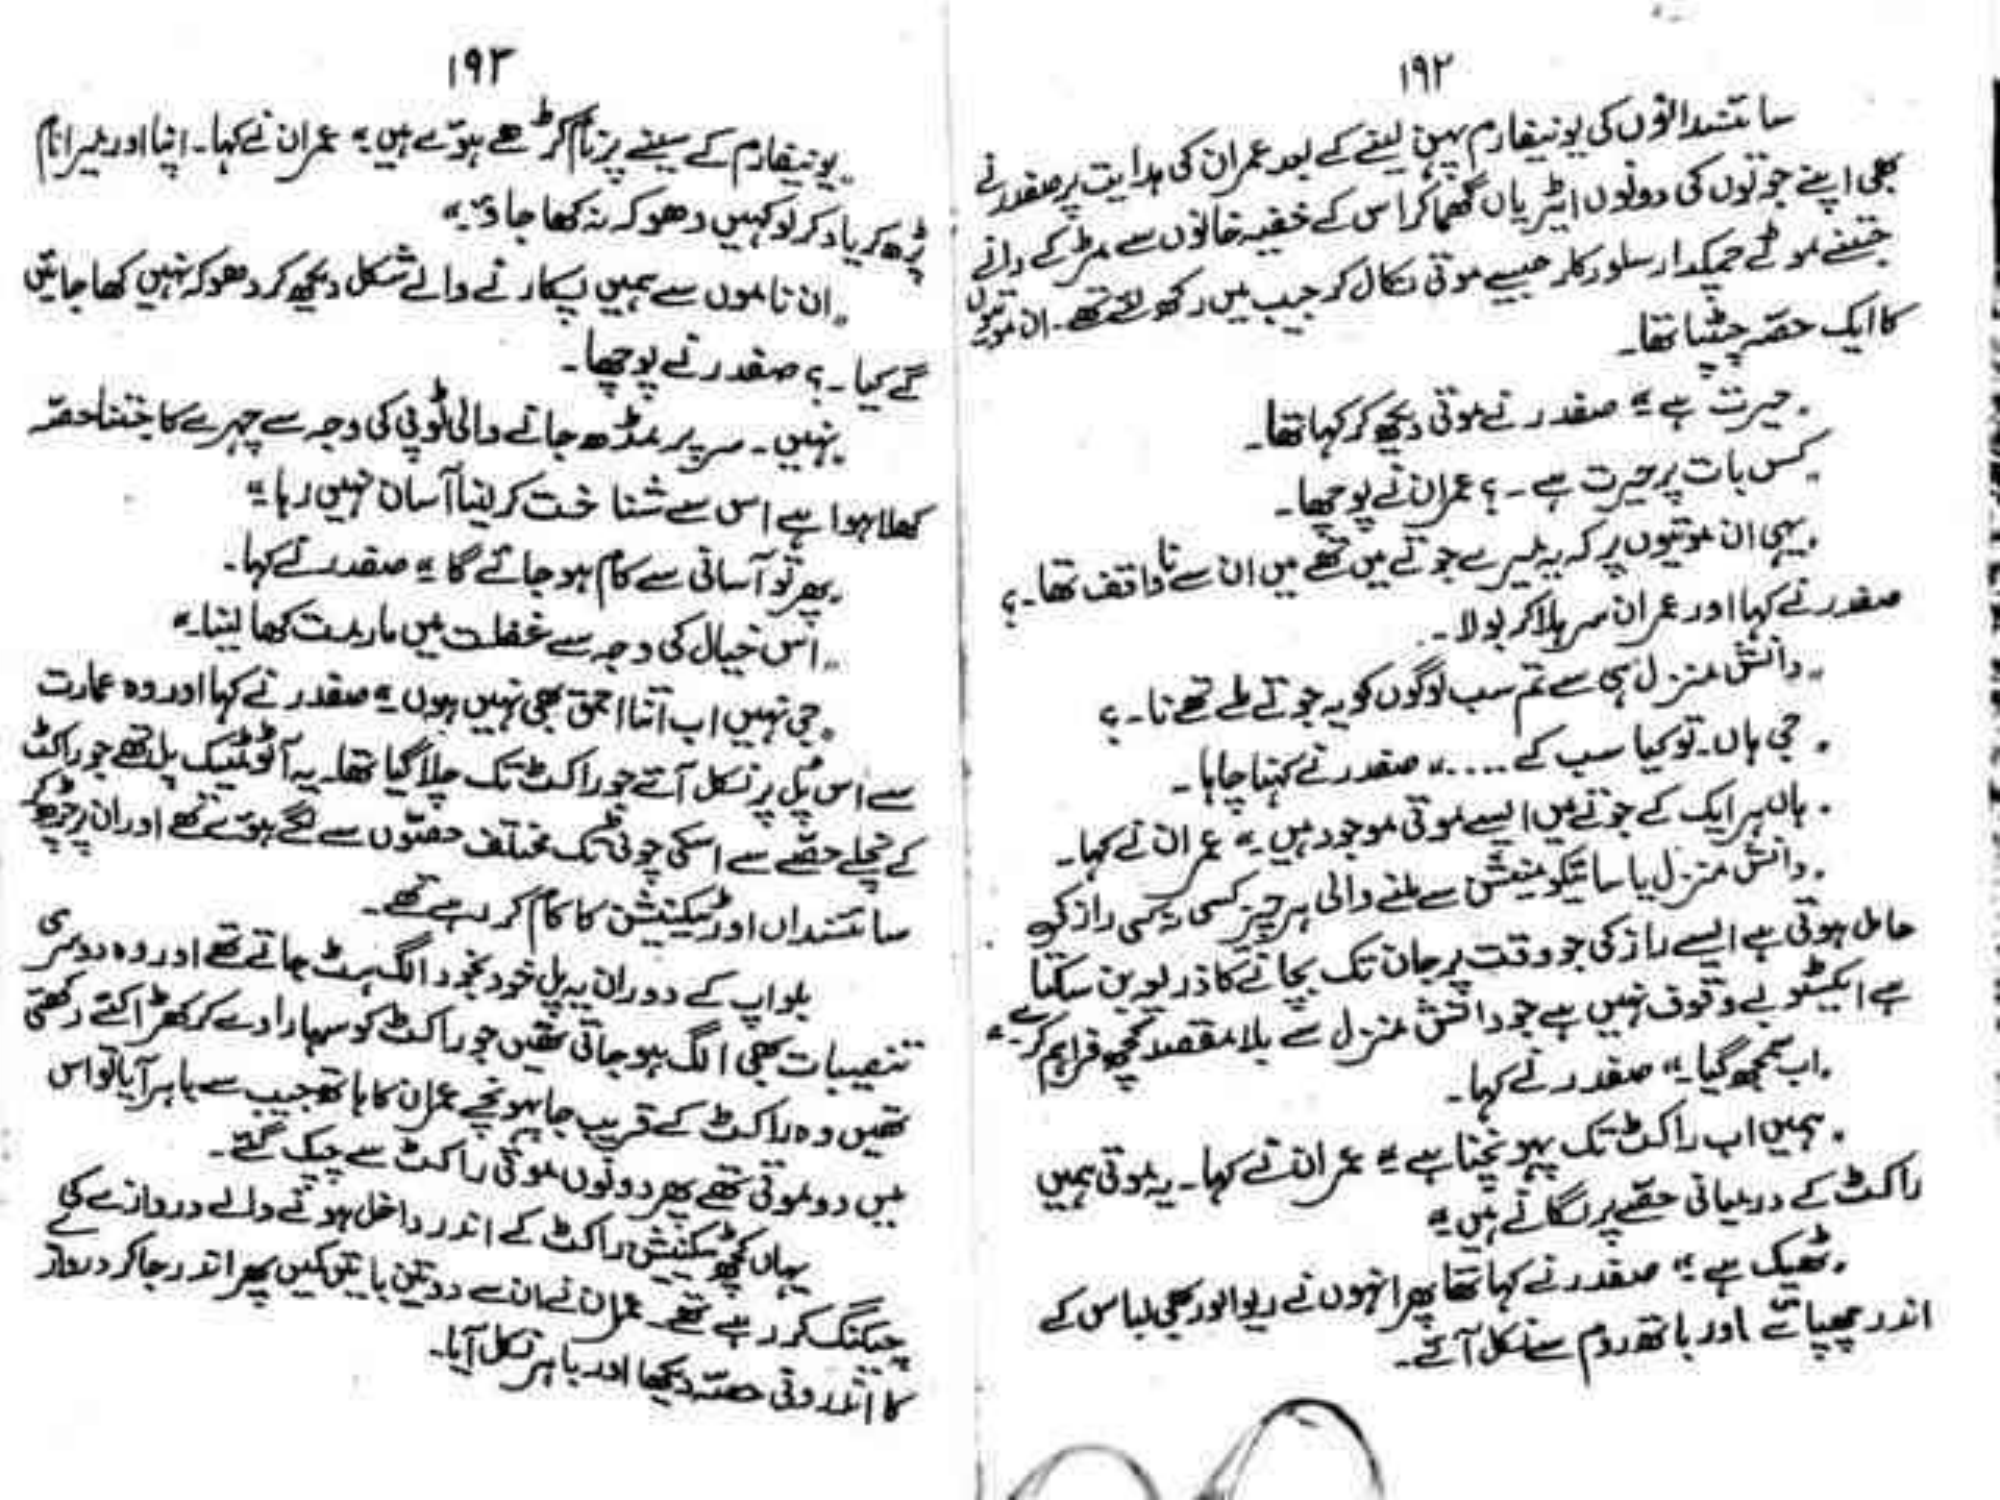 ۱۹۲
سائنسدانوں کی یونیفارم پہن لینے کے بعد عمران کی ہدایت پر صفدر نے
بھی اپنے جوتوں کی دونوں ایڑیاں گھما کر اس کے خفیہ خانوں سے مٹر کے دانے
جتنے موٹے چمکدار سلور کلر جیسے موتی نکال کر جیب میں رکھ لئے تھے۔ ان موتیوں
کا ایک حصہ چپٹا تھا۔
"حیرت ہے۔" صفدر نے موتی دیکھ کر کہا تھا۔
"کس بات پر حیرت ہے۔؟ عمران نے پوچھا۔
"یہی ان موتیوں پر کہ یہ میرے جوتے میں تھے میں ان سے نا واقف تھا۔؟
صفدر نے کہا اور عمران سر ہلا کر بولا۔
"دانش منزل ہی سے تم سب لوگوں کو یہ جوتے ملے تھے نا۔؟
"جی ہاں۔ تو کیا سب کے ....." صفدر نے کہنا چاہا۔
"ہاں ہر ایک کے جوتے میں ایسے موتی موجود ہیں۔" عمران نے کہا۔
"دانش منزل یا سائیکو مینشن سے ملنے والی ہر چیز کسی نہ کسی راز کی
حامل ہوتی ہے ایسے راز کی جو وقت پر جان تک بچانے کا ذریعہ بن سکتا
ہے ایکسٹو بے وقوف نہیں ہے جو دانش منزل سے بلا مقصد کچھ فراہم کرے۔"
"اب سمجھ گیا۔" صفدر نے کہا۔
"ہمیں اب راکٹ تک پہونچنا ہے۔" عمران نے کہا۔ یہ موتی ہمیں
راکٹ کے درمیانی حصے پر لگانے ہیں۔"
"ٹھیک ہے۔" صفدر نے کہا تھا پھر انہوں نے ریوالور بھی لباس کے
اندر چھپائے اور باتھ روم سے نکل آئے۔
۱۹۳
"یونیفارم کے سینے پر نام کڑھے ہوئے ہیں۔" عمران نے کہا۔ اپنا اور میرا نام
پڑھ کر یاد کر لو کہیں دھوکہ نہ کھا جاؤ۔"
"ان ناموں سے ہمیں پکارنے والے شکل دیکھ کر دھوکہ نہیں کھا جائیں
گے کیا۔؟ صفدر نے پوچھا۔
"نہیں۔ سر پر منڈھ جانے والی ٹوپی کی وجہ سے چہرے کا جتنا حصہ
کھلا ہوا ہے اس سے شناخت کر لینا آسان نہیں رہا۔"
"پھر تو آسانی سے کام ہو جائے گا۔" صفدر نے کہا۔
"اس خیال کی وجہ سے غفلت میں مار مت کھا لینا۔"
"جی نہیں اب اتنا احمق بھی نہیں ہوں۔" صفدر نے کہا اور وہ عمارت
سے اس پُل پر نکل آئے جو راکٹ تک چلا گیا تھا۔ یہ آٹومٹیک پل تھے جو راکٹ
کے نچلے حصے سے اسکی چوٹی تک مختلف حصوں سے لگے ہوئے تھے اور ان پر چڑھ کر
سائنسداں اور ٹیکنیشن کا کام کر رہے تھے۔
بلو اپ کے دوران یہ پل خود بخود الگ ہٹ جاتے تھے اور وہ دوسری
تنصیبات بھی الگ ہو جاتی تھیں جو راکٹ کو سہارا دے کر کھڑا کئے رکھتی
تھیں وہ راکٹ کے قریب جا پہونچے عمران کا ہاتھ جیب سے باہر آیا تو اس
میں دو موتی تھے پھر دونوں موتی راکٹ سے چپک گئے۔
یہاں کچھ ٹیکنیشن راکٹ کے اندر داخل ہونے والے دروازے کی
چیکنگ کر رہے تھے۔ عمران نے ان سے دو تین باتیں کیں پھر اندر جا کر درواز
کا اندرونی حصہ دیکھا اور باہر نکل آیا۔